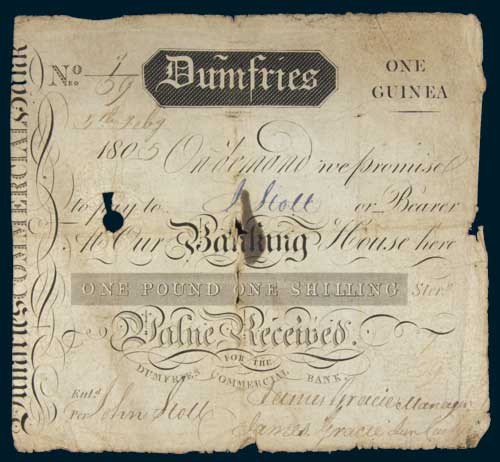 Dumfries Commercial Bank
No 7/69
Dumfries
ONE
GUINEA
5th Feby
1805 On demand we promise
to pay to J. Stott or Bearer
At Our Banking House here
ONE POUND ONE SHILLING Ster.
Value Received.
FOR THE
DUMFRIES COMMERCIAL BANK.
Entd. James Gracie Manager
For John Stott James Gracie Jun